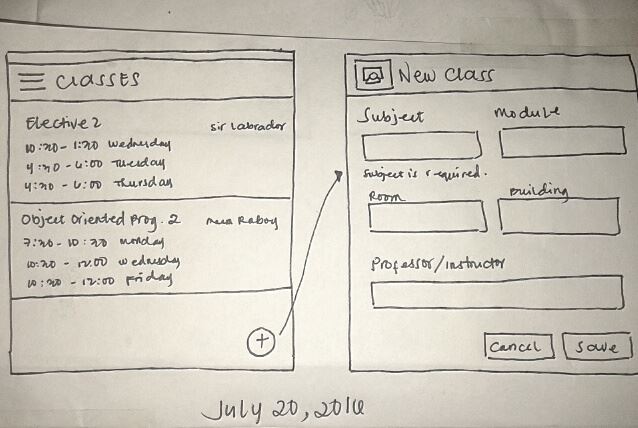 CLASSES
Elective 2
Sir Labrador
10:30 - 1:30 Wednesday
4:30 - 6:00 Tuesday
4:30 - 6:00 Thursday
Object Oriented Prog. 2
Raboy
7:30 - 10:30 Monday
10:30 - 12:00 Wednesday
10:30 - 12:00 Friday
+
New Class
Subject
Module
Subject is required.
Room
Building
Professor/Instructor
Cancel
Save
July 20, 2016